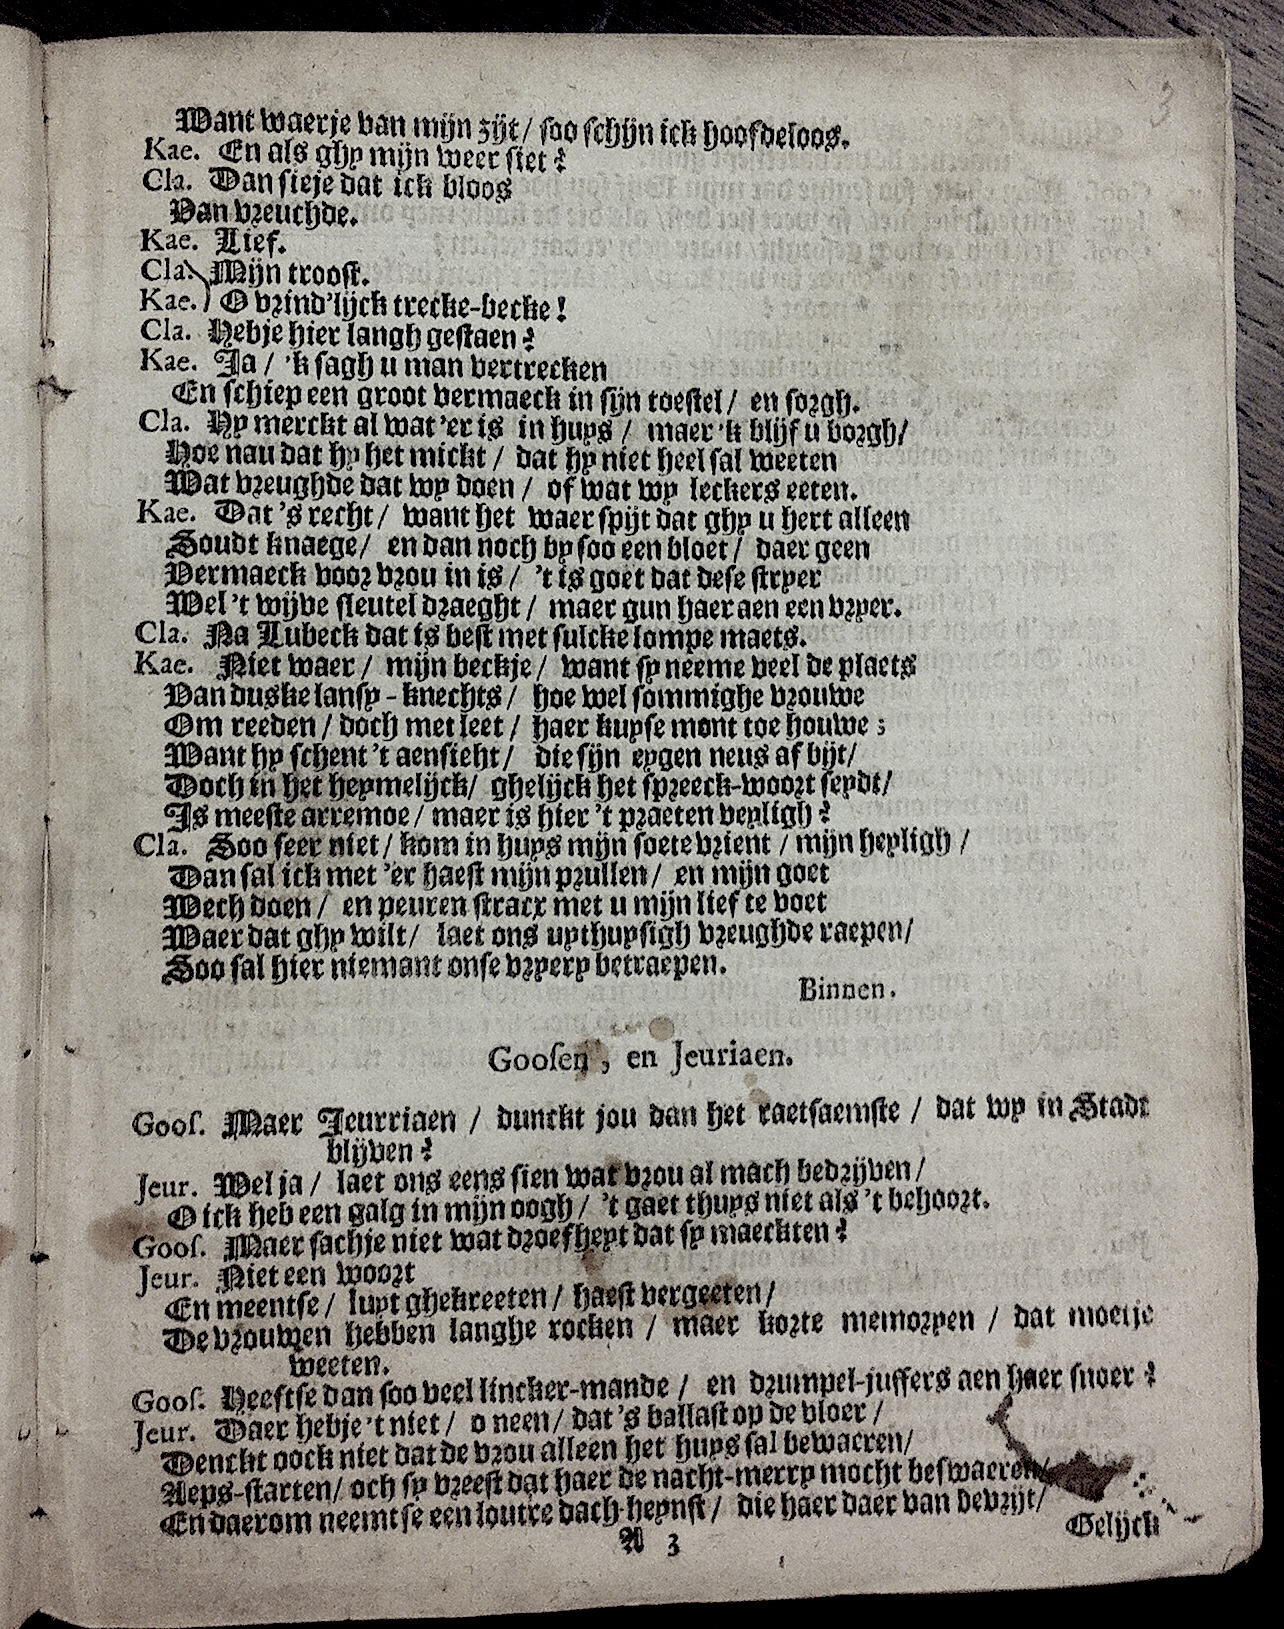 3
Want waerje van mijn zijt / soo schijn ick hoofdeloos.
Kae. En als ghy mijn weer siet?
Cla. Dan sieje dat ick bloos
Van vreuchde.
Kae. Lief.
Cla. Mijn troost.
Kae. O vrind'lijck trecke-becke!
Cla. Hebje hier langh gestaen?
Kae. Ja / 'k sagh u man vertrecken
En schiep een groot vermaeck in sijn toestel / en sorgh.
Cla. Hy merckt al wat 'er is in huys / maer 'k blijf u borgh /
Hoe nau dat hy het mickt / dat hy niet heel sal weeten
Wat vreughde dat wy doen / of wat wy leckers eeten.
Kae. Dat 's recht / want het waer spijt dat ghy u hert alleen
Soudt knaege / en dan noch by soo een bloet / daer geen
Vermaeck voor vrou in is / 't is goet dat dese stryer
Wel 't wijve sleutel draeght / maer gun haer aen een vryer.
Cla. Na Lubeck dat is best met sulcke lompe maets.
Kae. Niet waer / mijn beckje / want sy neeme veel de plaets
Van duske lansy-knechts / hoe wel sommighe vrouwe
Om reeden / doch met leet / haer kuyse mont toe houwe;
Want hy schent 't aensicht / die sijn eygen neus af bijt /
Doch in het heymelijck / ghelijck het spreeck-woort seydt /
Is meeste arremoe / maer is hier 't praeten veyligh?
Cla. Soo seer niet / kom in huys mijn soete vrient / mijn heyligh /
Dan sal ick met 'er haest mijn prullen / en mijn goet
Wech doen / en peuren stracx met u mijn lief te voet
Waer dat ghy wilt / laet ons uythuysigh vreughde raepen /
Soo sal hier niemant onse vryery betraepen.
Binnen.
Goosen, en Jeuriaen.
Goos. Maer Jeurriaen / dunckt jou dan het raetsaemste / dat wy in Stadt
blijven?
Jeur. Wel ja / laet ons eens sien wat vrou al mach bedrijven /
O ick heb een galg in mijn oogh / 't gaet thuys niet als 't behoort.
Goos. Maer sachje niet wat droefheyt dat sy maeckten?
Jeur. Niet een woort
En meentse / luyt ghekreeten / haest vergeeten /
De vrouwen hebben langhe rocken / maer korte memoryen / dat moetje
weeten.
Goos. Heeftse dan soo veel lincker-mande / en drumpel-juffers aen haer snoer?
Jeur. Daer hebje 't niet / o neen / dat 's ballast op de vloer /
Denckt oock niet dat de vrou alleen het huys sal bewaeren /
Aeps-starten / och sy vreest dat haer de nacht-merry mocht beswaeren /
En daerom neemtse een loutre dach-heynst / die haer daer van bevrijt /
A 3
Gelijck